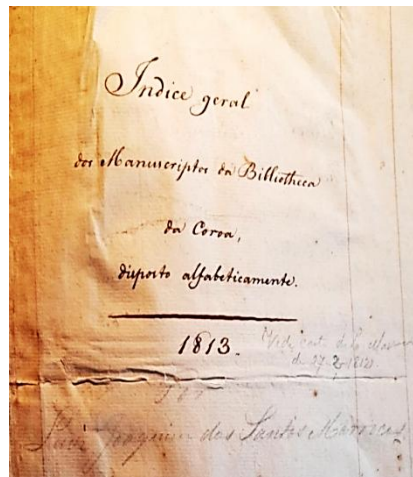 Indice geral
dos Manuscriptos da Bibliotheca
da Coroa,
disposto alfabeticamente.
1813.
de
por
Luiz Joaquim dos Santos Marrocos